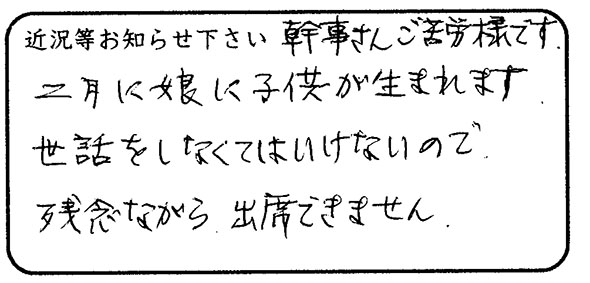 近況等お知らせ下さい 幹事さんご苦労様です.
二月に娘に子供が生まれます.
世話をしなくてはいけないので.
残念ながら.出席できません.